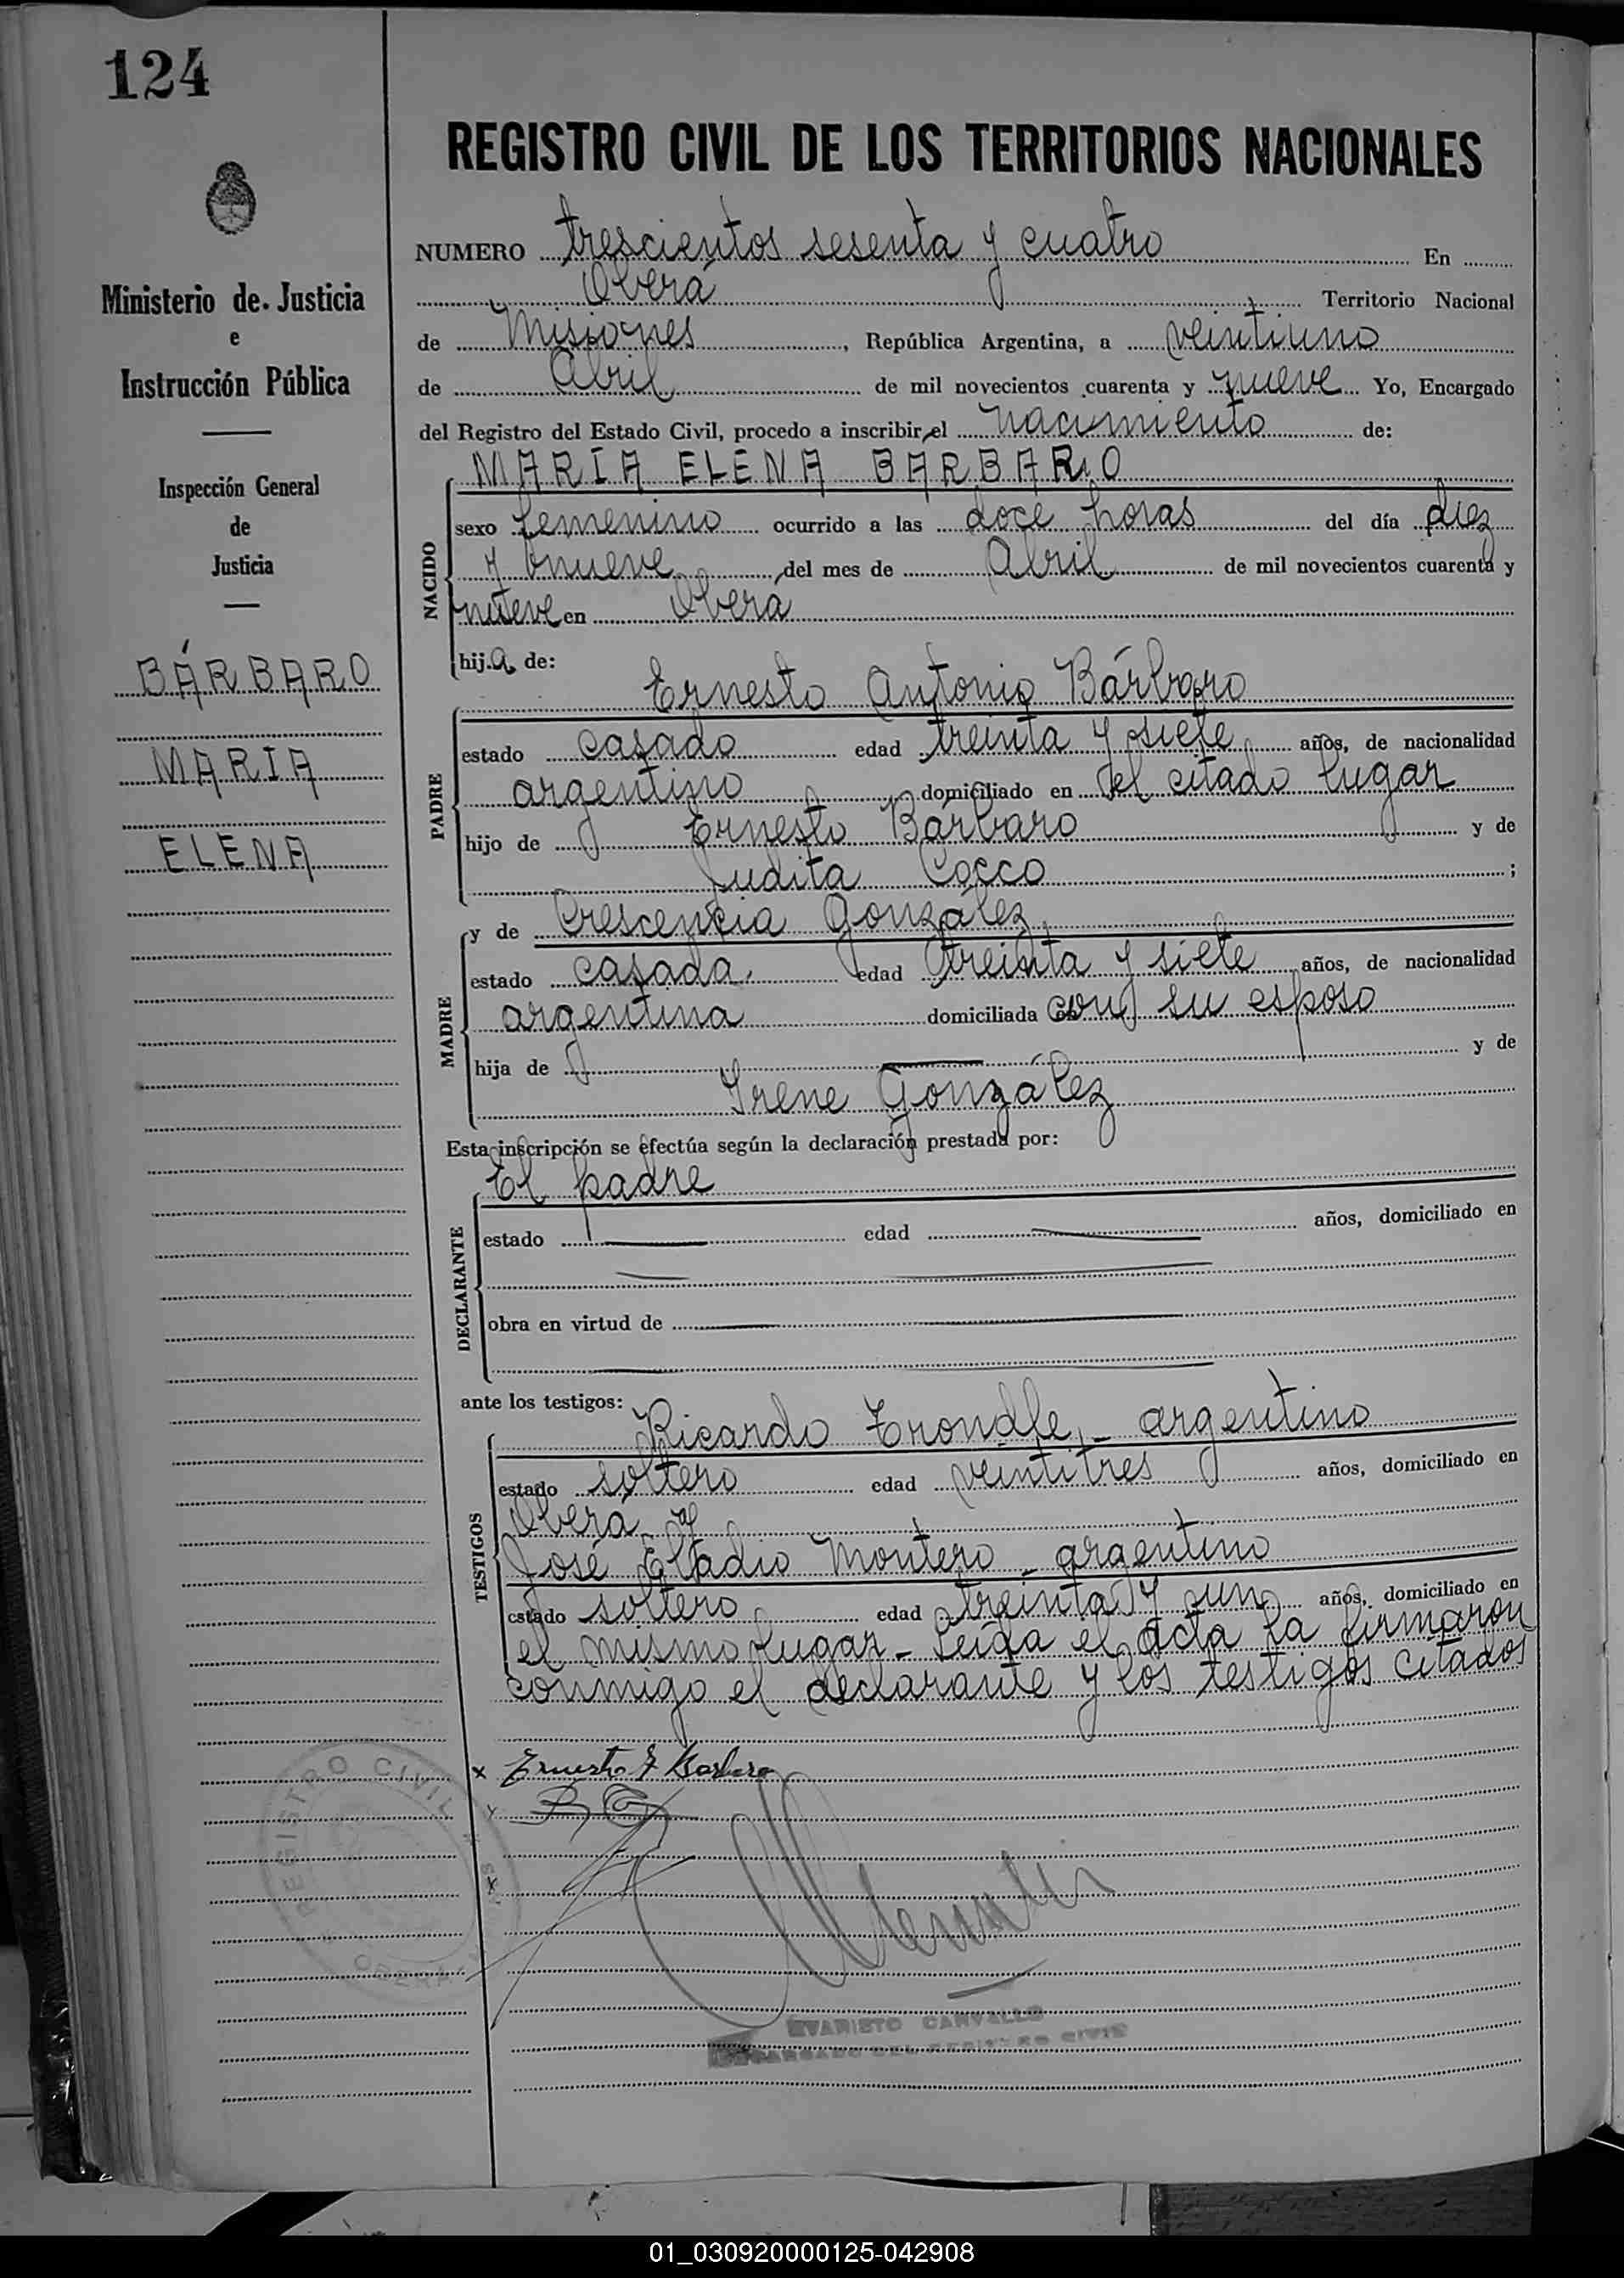 124
Ministerio de Justicia
e
Instrucción Pública
Inspección General
de
Justicia
BÁRBARO
MARIA
ELENA
REGISTRO CIVIL DE LOS TERRITORIOS NACIONALES
NUMERO trescientos sesenta y cuatro En
Oberá Territorio Nacional
de Misiones, República Argentina, a veintiuno
de Abril de mil novecientos cuarenta y nueve Yo, Encargado
del Registro del Estado Civil, procedo a inscribir el nacimiento de:
MARÍA ELENA BARBARO
NACIDO
sexo femenino ocurrido a las doce horas del día diez
y nueve del mes de Abril de mil novecientos cuarenta y
nueve en Oberá
hija de:
Ernesto Antonio Bárbaro
PADRE
estado casado edad treinta y siete años, de nacionalidad
argentino domiciliado en el citado lugar
hijo de Ernesto Bárbaro y de
Judita Cocco ;
y de Crescencia González
MADRE
estado casada edad treinta y siete años, de nacionalidad
argentina domiciliada con su esposo
hija de y de
Irene González
Esta inscripción se efectúa según la declaración prestada por:
El padre
DECLARANTE
estado edad años, domiciliado en
obra en virtud de
ante los testigos:
Ricardo Trondle, - argentino
TESTIGOS
estado soltero edad veintitres años, domiciliado en
Oberá y
José Eladio Montero - argentino
estado soltero edad treinta y un años, domiciliado en
el mismo lugar - Leída el acta la firmaron
conmigo el declarante y los testigos citados
x Ernesto A Barbaro
REGISTRO CIVIL
OBERA
EVARISTO CARVALLO
ENCARGADO DEL REGISTRO CIVIL
01_030920000125-042908